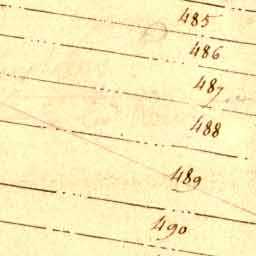 485
486
487
488
489
490